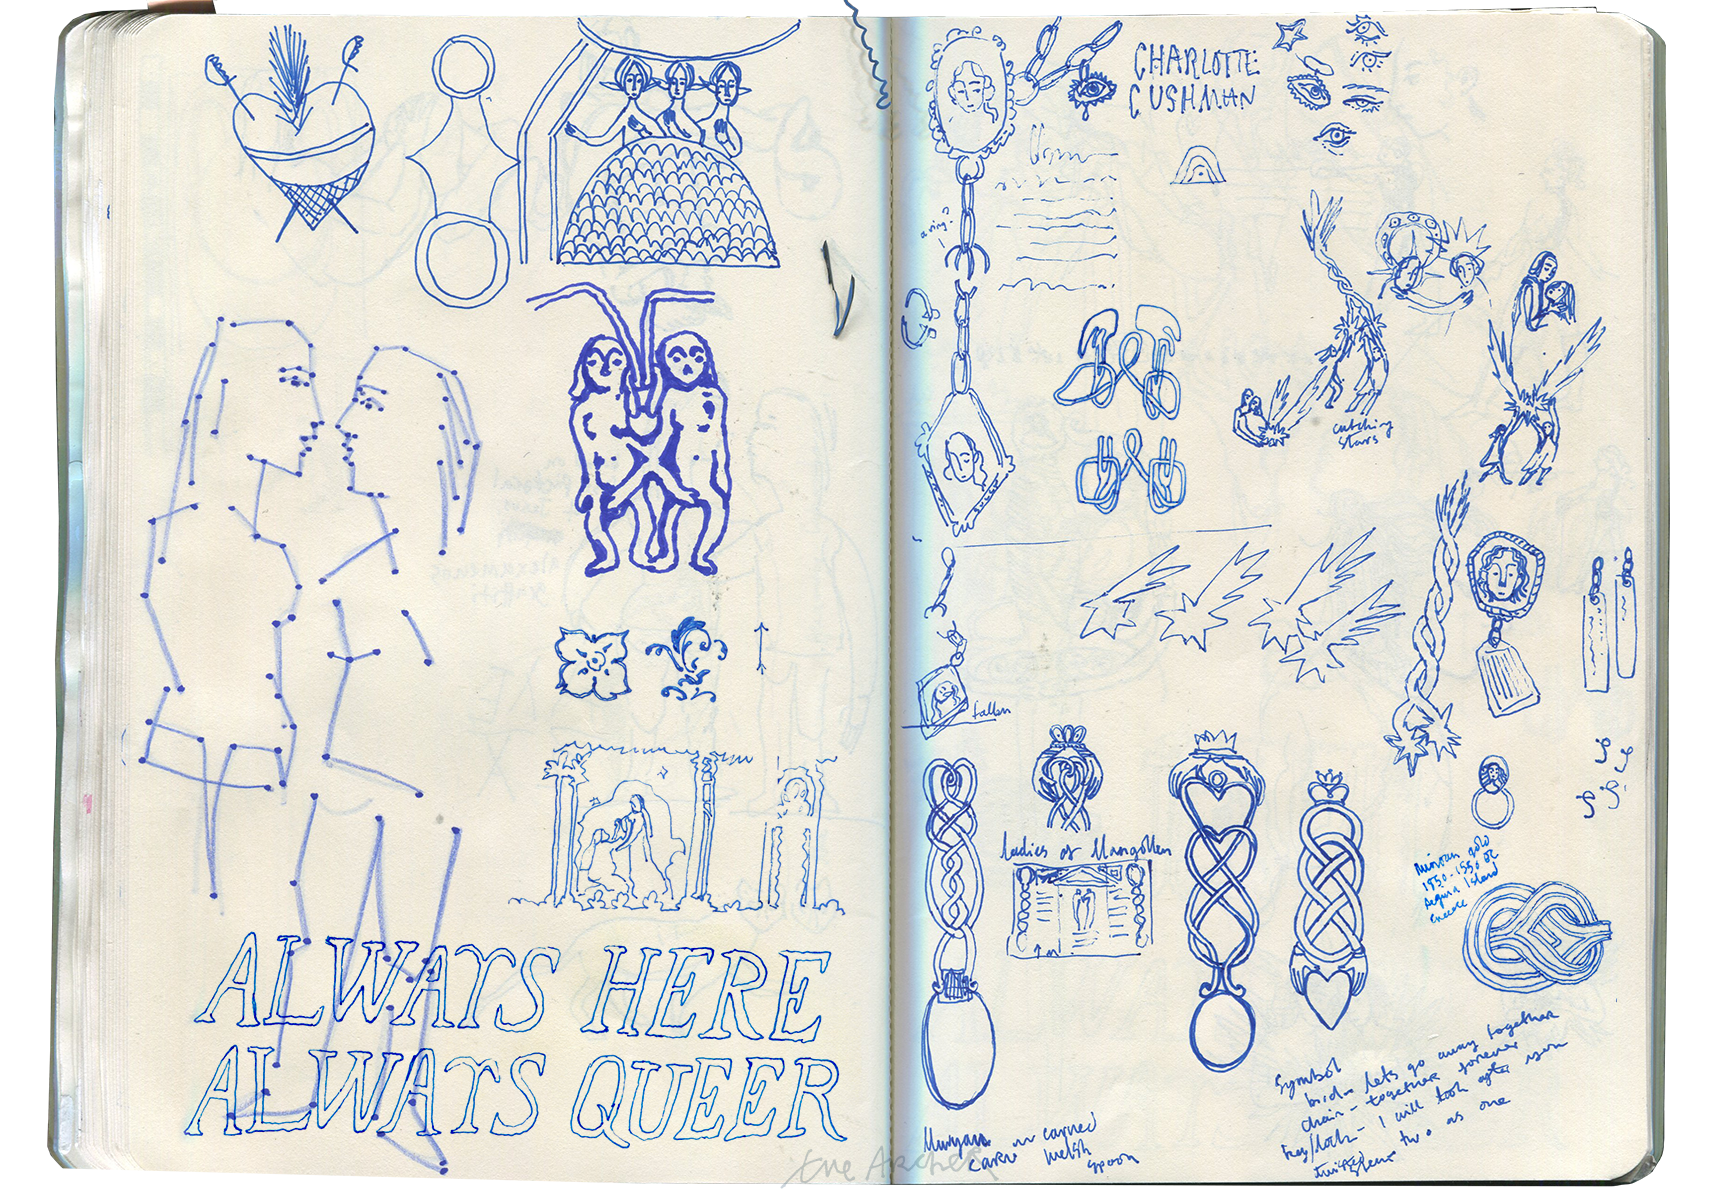 ALWAYS HERE
ALWAYS QUEER
CHARLOTTE
CUSHMAN
a ring?
catching
stars
fallen
Ladies of Llangollen
Minoan gold
1850-1550 BC
Aegina Island
Greece
Symbol
bird - lets go away together
chain - together forever
key/lock - I will look after you
twisted two as one
carved
Welsh
spoon
Eve Archer